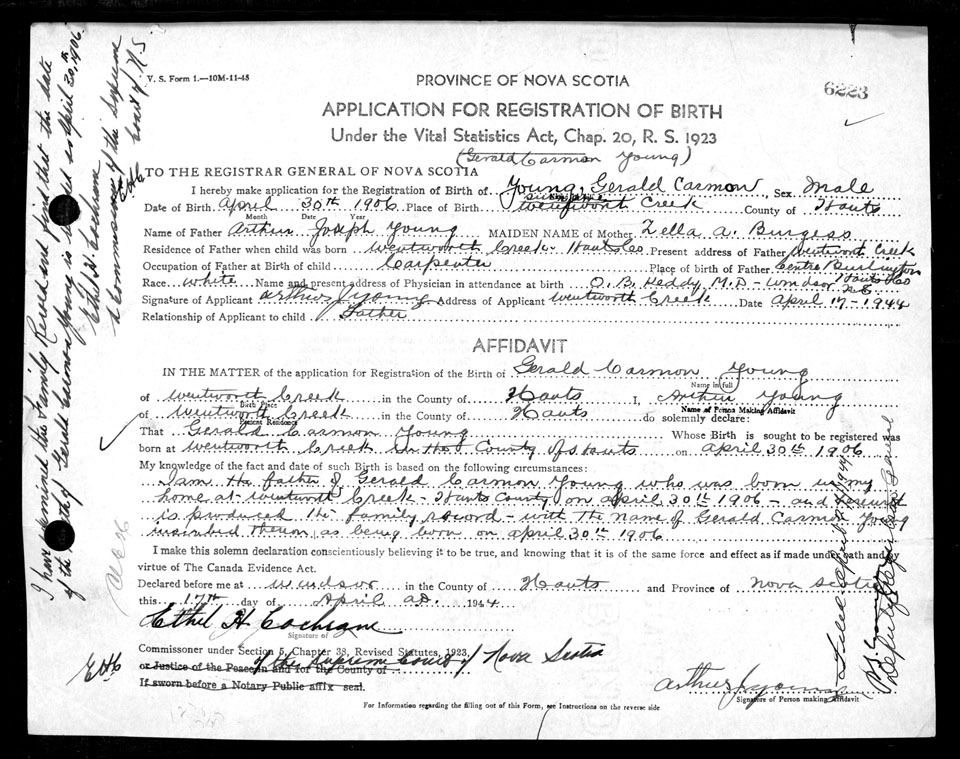 V. S. Form 1.—10M-11-43
PROVINCE OF NOVA SCOTIA
6223
APPLICATION FOR REGISTRATION OF BIRTH
Under the Vital Statistics Act, Chap. 20, R. S. 1923
(Gerald Carmon Young)
TO THE REGISTRAR GENERAL OF NOVA SCOTIA
I hereby make application for the Registration of Birth of Young, Gerald Carmon, Sex Male
Date of Birth April 30th 1906 Place of Birth Wentworth Creek County of Hants
Month Date Year
Name of Father Arthur Joseph Young MAIDEN NAME of Mother Zella A. Burgess
Residence of Father when child was born Wentworth Creek - Hants Co Present address of Father Wentworth Creek
Occupation of Father at Birth of child Carpenter Place of Birth of Father Centre Burlington Hants Co
Race White Name and present address of Physician in attendance at birth O. B. Keddy M.D - Windsor N.S.
Signature of Applicant Arthur J Young Address of Applicant Wentworth Creek Date April 17 - 1944
Relationship of Applicant to child Father
AFFIDAVIT
IN THE MATTER of the application for Registration of the Birth of Gerald Carmon Young
Name in full
of Wentworth Creek in the County of Hants I, Arthur Young
Birth Place Name of Person Making Affidavit
of Wentworth Creek in the County of Hants do solemnly declare:
Present Residence
That Gerald Carmon Young Whose Birth is sought to be registered was
born at Wentworth Creek in the County of Hants on April 30th 1906
My knowledge of the fact and date of such Birth is based on the following circumstances:
I am the father of Gerald Carmon Young who was born in my
home at Wentworth Creek - Hants County on April 30th 1906 - and herewith
is produced the family record - with the name of Gerald Carmon Young
inscribed thereon as being born on April 30th 1906
I make this solemn declaration conscientiously believing it to be true, and knowing that it is of the same force and effect as if made under oath and by
virtue of The Canada Evidence Act.
Declared before me at Windsor in the County of Hants and Province of Nova Scotia
this 17th day of April A.D. 1944
Ethel H Cochrane
Signature of
Commissioner under Section 5, Chapter 38, Revised Statutes, 1923,
of the Supreme Court of Nova Scotia
or Justice of the Peace in and for the County of
EHC
If sworn before a Notary Public affix seal.
Arthur J Young
Signature of Person making Affidavit
For Information regarding the filling out of this Form, see Instructions on the reverse side
I have examined the Family Record and find that the date
of the birth of Gerald Carmon Young is recorded as April 30th 1906.
Ethel H. Cochrane
A Commissioner of the Supreme
Court of N.S.
EHC
Filed April
Deputy Registrar General